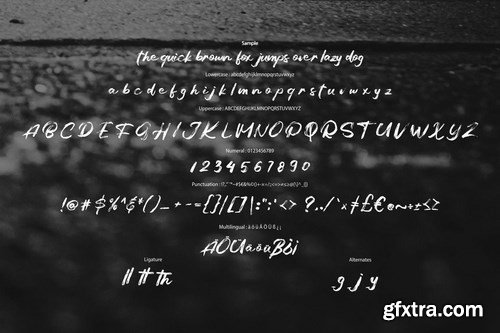 Sample
the quick brown fox jumps over lazy dog
Lowercase : abcdefghijklmnopqrstuvwxyz
a b c d e f g h i j k l m n o p q r s t u v w x y z
Uppercase : ABCDEFGHIJKLMNOPQRSTUVWXYZ
A B C D E F G H I J K L M N O P Q R S T U V W X Y Z
Numeral : 0123456789
1 2 3 4 5 6 7 8 9 0
Multilingual : ä ö ü Ä Ö Ü ß ¡ ¿
Ligature
Alternates
ll tt th
g j y
gfxtra.com